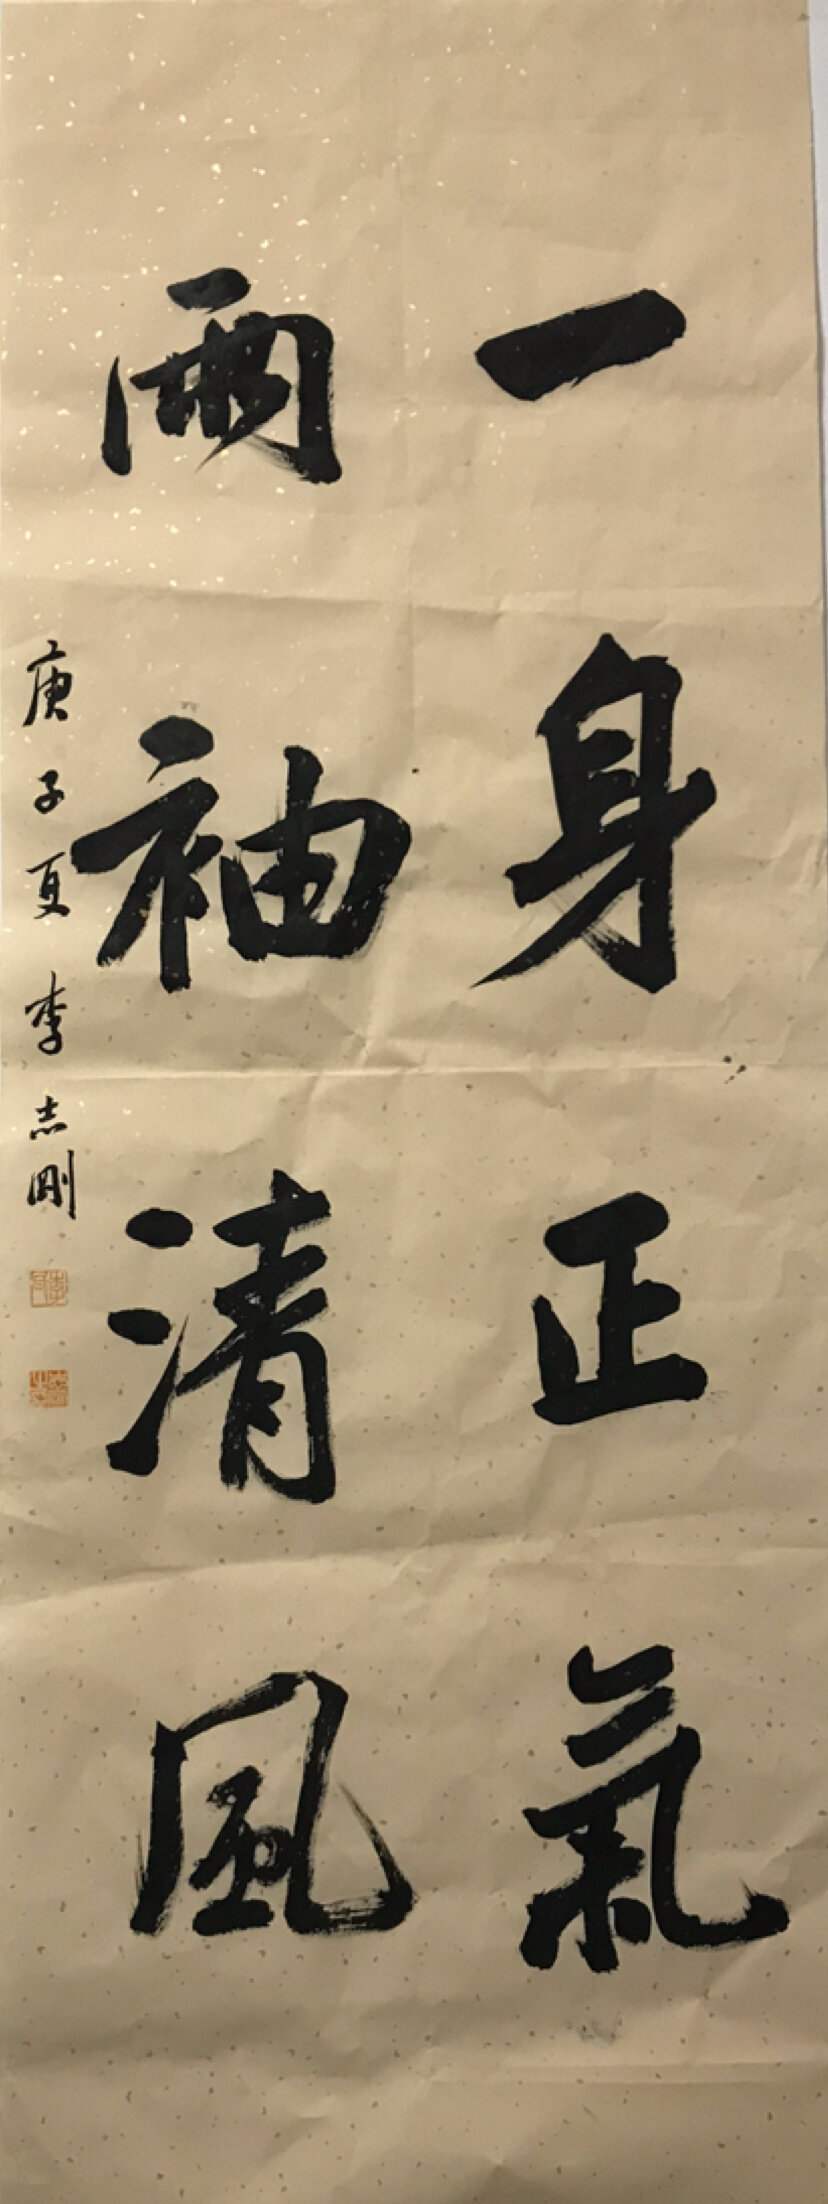 一身正氣
兩袖清風
庚子夏李志剛